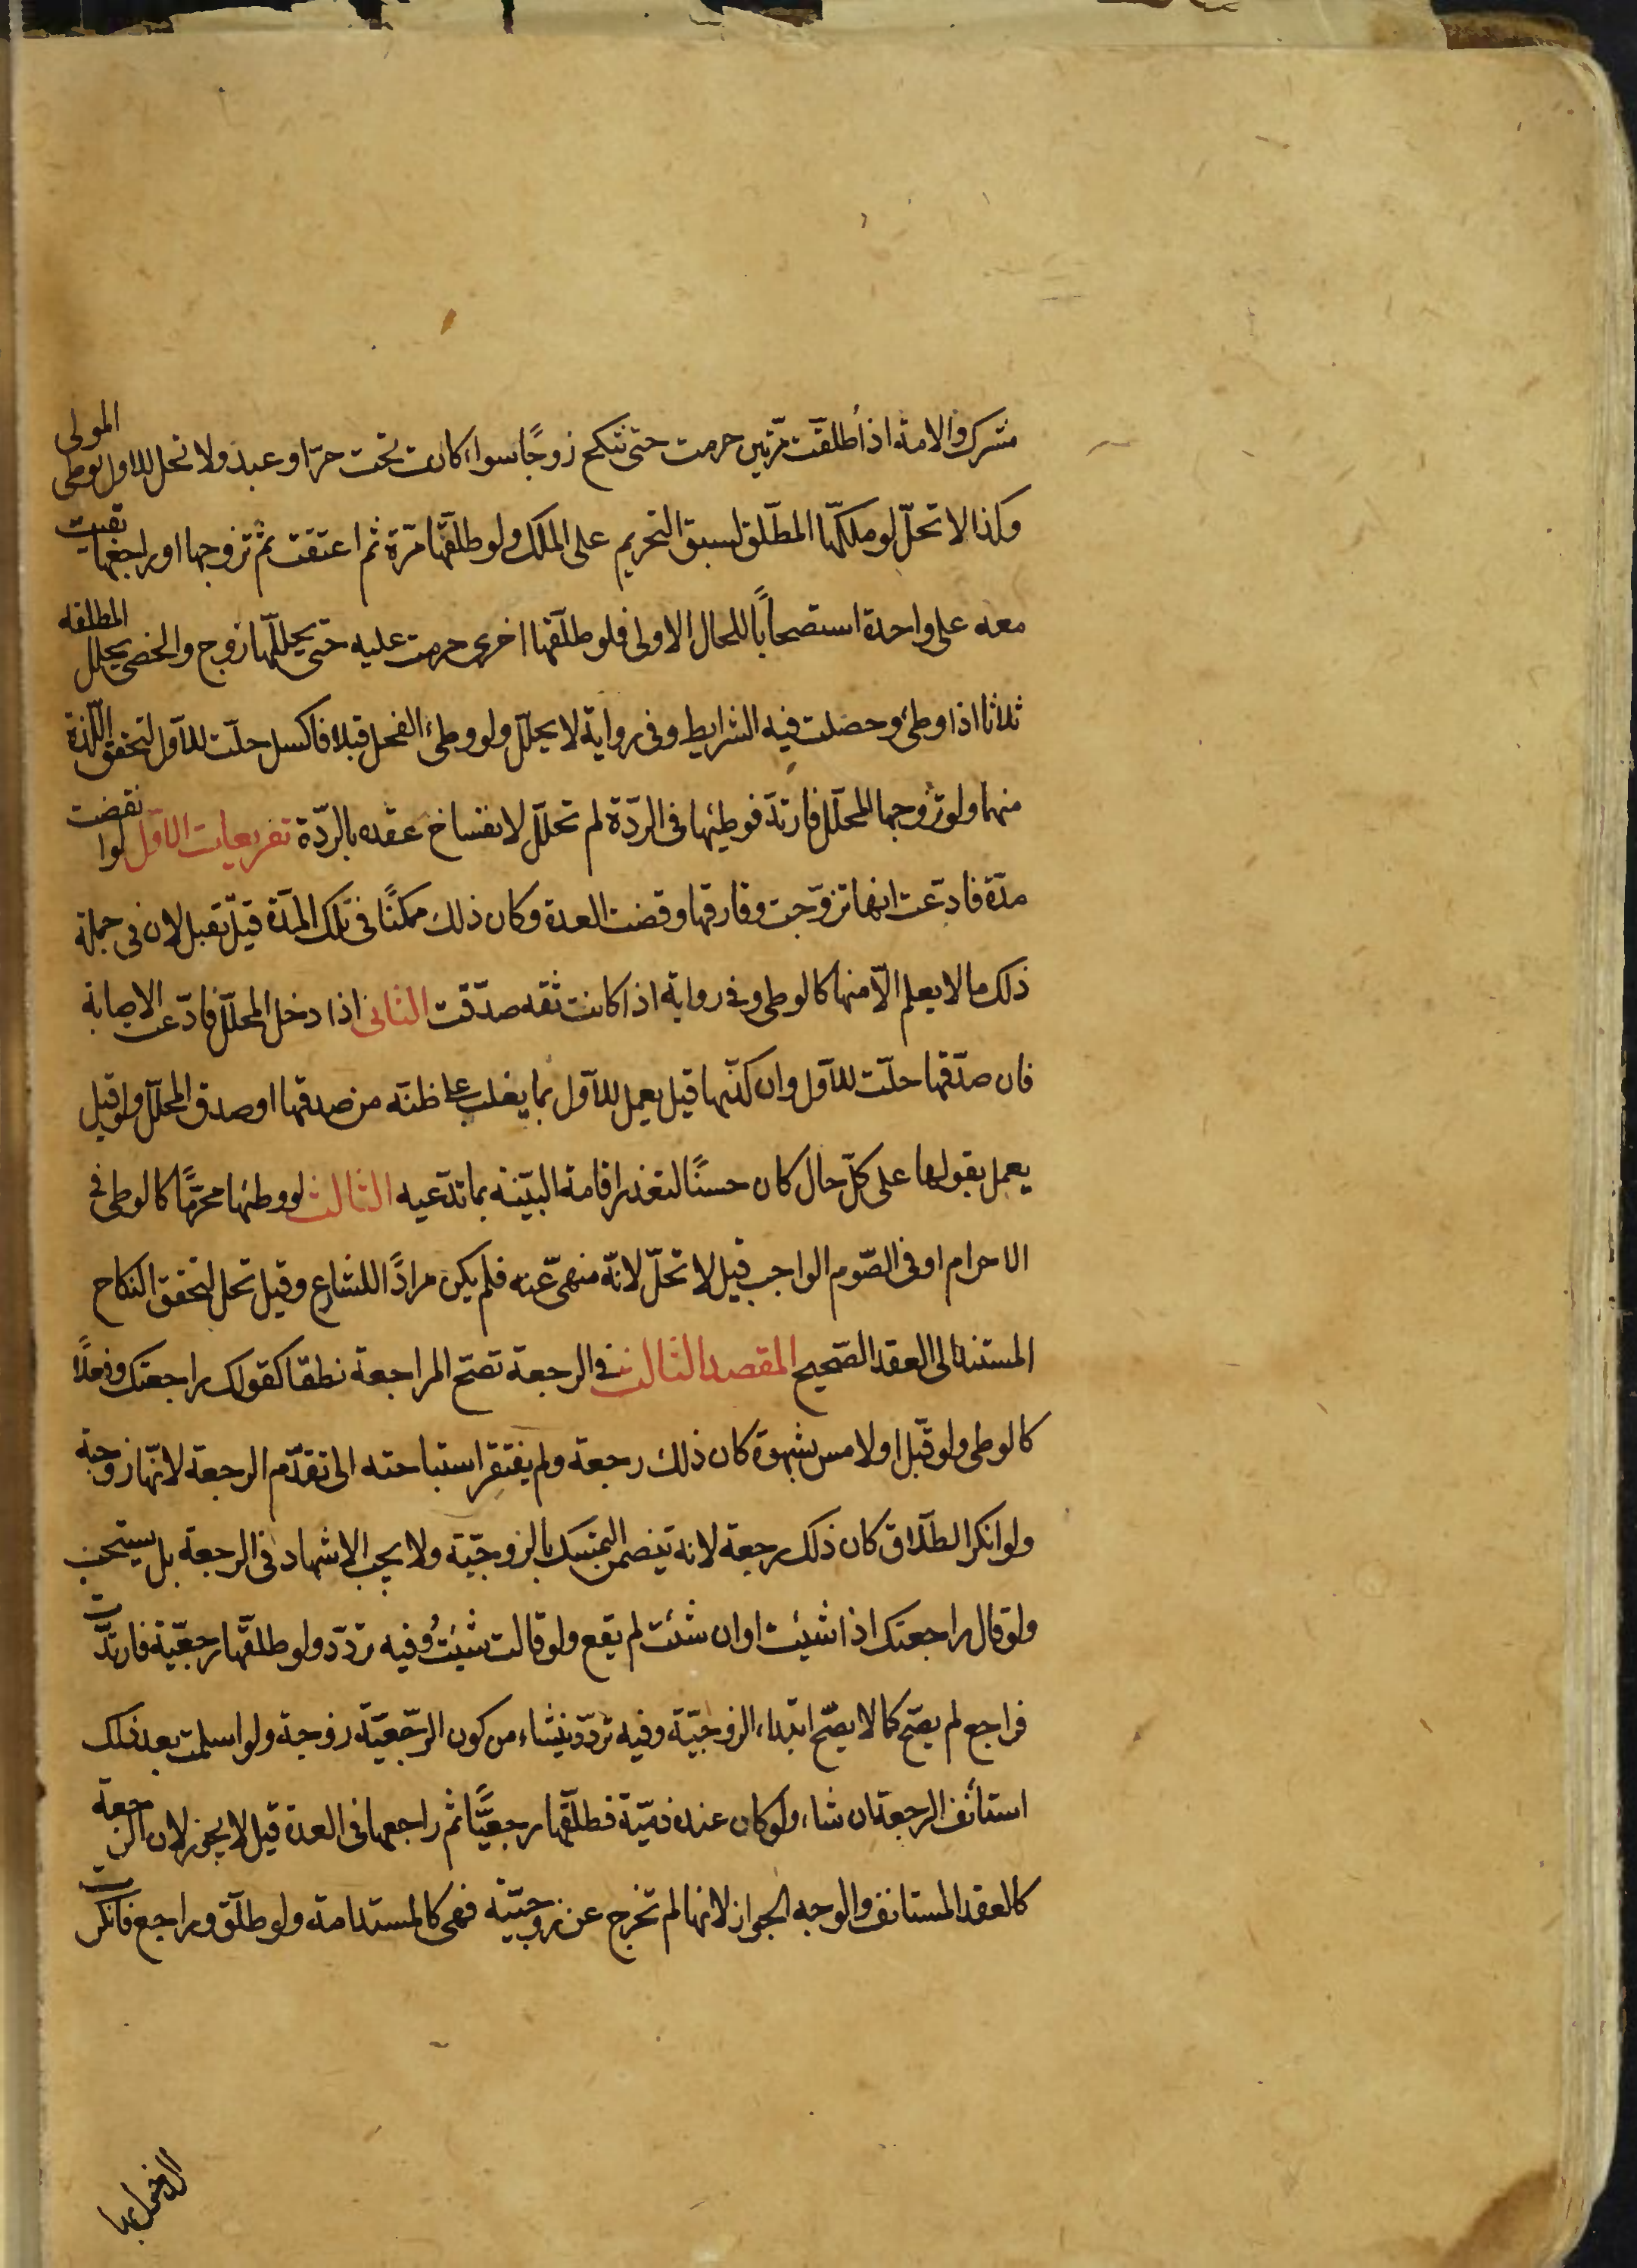 مشترك والامة اذا طلقت مرّتين حرمت حتى تنكح زوجًا سواء كانت تحت حرّ او عبد ولا تحل للاول بوطى المولى
وكذا لا تحلّ لو ملكها المطلّق لسبق التحريم على الملك ولو طلّقها مرّة ثم اعتقت ثم تزوجها او راجعها بقيت
معه على واحدة استصحابًا للحال الاولى فلو طلّقها اخرى حرمت عليه حتى يحلّلها زوج والخصى يحلل المطلقه
ثلاثا اذا وطئ وحصلت فيه الشرايط وفى رواية لا يحلّل ولو وطئ الفحل قبلا فاكسل حلّت للاول لتحقق اللّذة
منهما ولو تزوجها المحلّل فارتدّ فوطيها فى الردّة لم تحلّل لانفساخ عقده بالردّة تفريعات الاوّل لو انقضت
مدّة فادّعت انها تزوّجت وفارقها وقضت العدة وكان ذلك ممكنًا فى تلك المدّة قيل تقبل لان فى جملة
ذلك ما لا يعلم الّا منها كالوطى وفى رواية اذا كانت ثقه صدّقت الثانى اذا دخل المحلّل فادّعت الاصابة
فان صدّقها حلّت للاوّل وان كذّبها قيل يعمل للاوّل بما يغلب على ظنّه من صدقها او صدق المحلّل ولو قيل
يعمل بقولها على كلّ حال كان حسنًا لتعذر اقامة البيّنه بما تدّعيه الثالث لو وطئها محرّمًا كالوطى فى
الاحرام او فى الصّوم الواجب قيل لا تحلّ لانّه منهىّ عنه فلم يكن مرادًا للشارع وقيل تحل لتحقق النكاح
المستند الى العقد الصّحيح المقصد الثالث فى الرجعة تصحّ المراجعة نطقا كقولك راجعتك وفعلًا
كالوطى ولو قبّل او لامس بشهوة كان ذلك رجعة ولم يفتقر استباحته الى تقدّم الرجعة لانّها زوجة
ولو انكر الطلاق كان ذلك رجعة لانه يتضمن التمسّك بالزوجيّة ولا يجب الاشهاد فى الرجعة بل يستحب
ولو قال راجعتك اذا شيئت او ان شئت لم يقع ولو قالت شئتُ وفيه تردّد ولو طلّقها رجعيّة فارتدّت
فراجع لم يصحّ كما لا يصّح ابتداء الزوجيّة وفيه تردّد ينشاء من كون الرّجعيّة زوجة ولو اسلمت بعد ذلك
استأنف الرجعة ان شاء ولو كان عنده ذميّة فطلّقها رجعيًّا ثم راجعها فى العدة قيل لا يجوز لان الرجعة
كالعقد المستانف والوجه الجواز لانها لم تخرج عن زوجيّته فهى كالمستدامة ولو طلّق وراجع فانكرت
الدخول بها